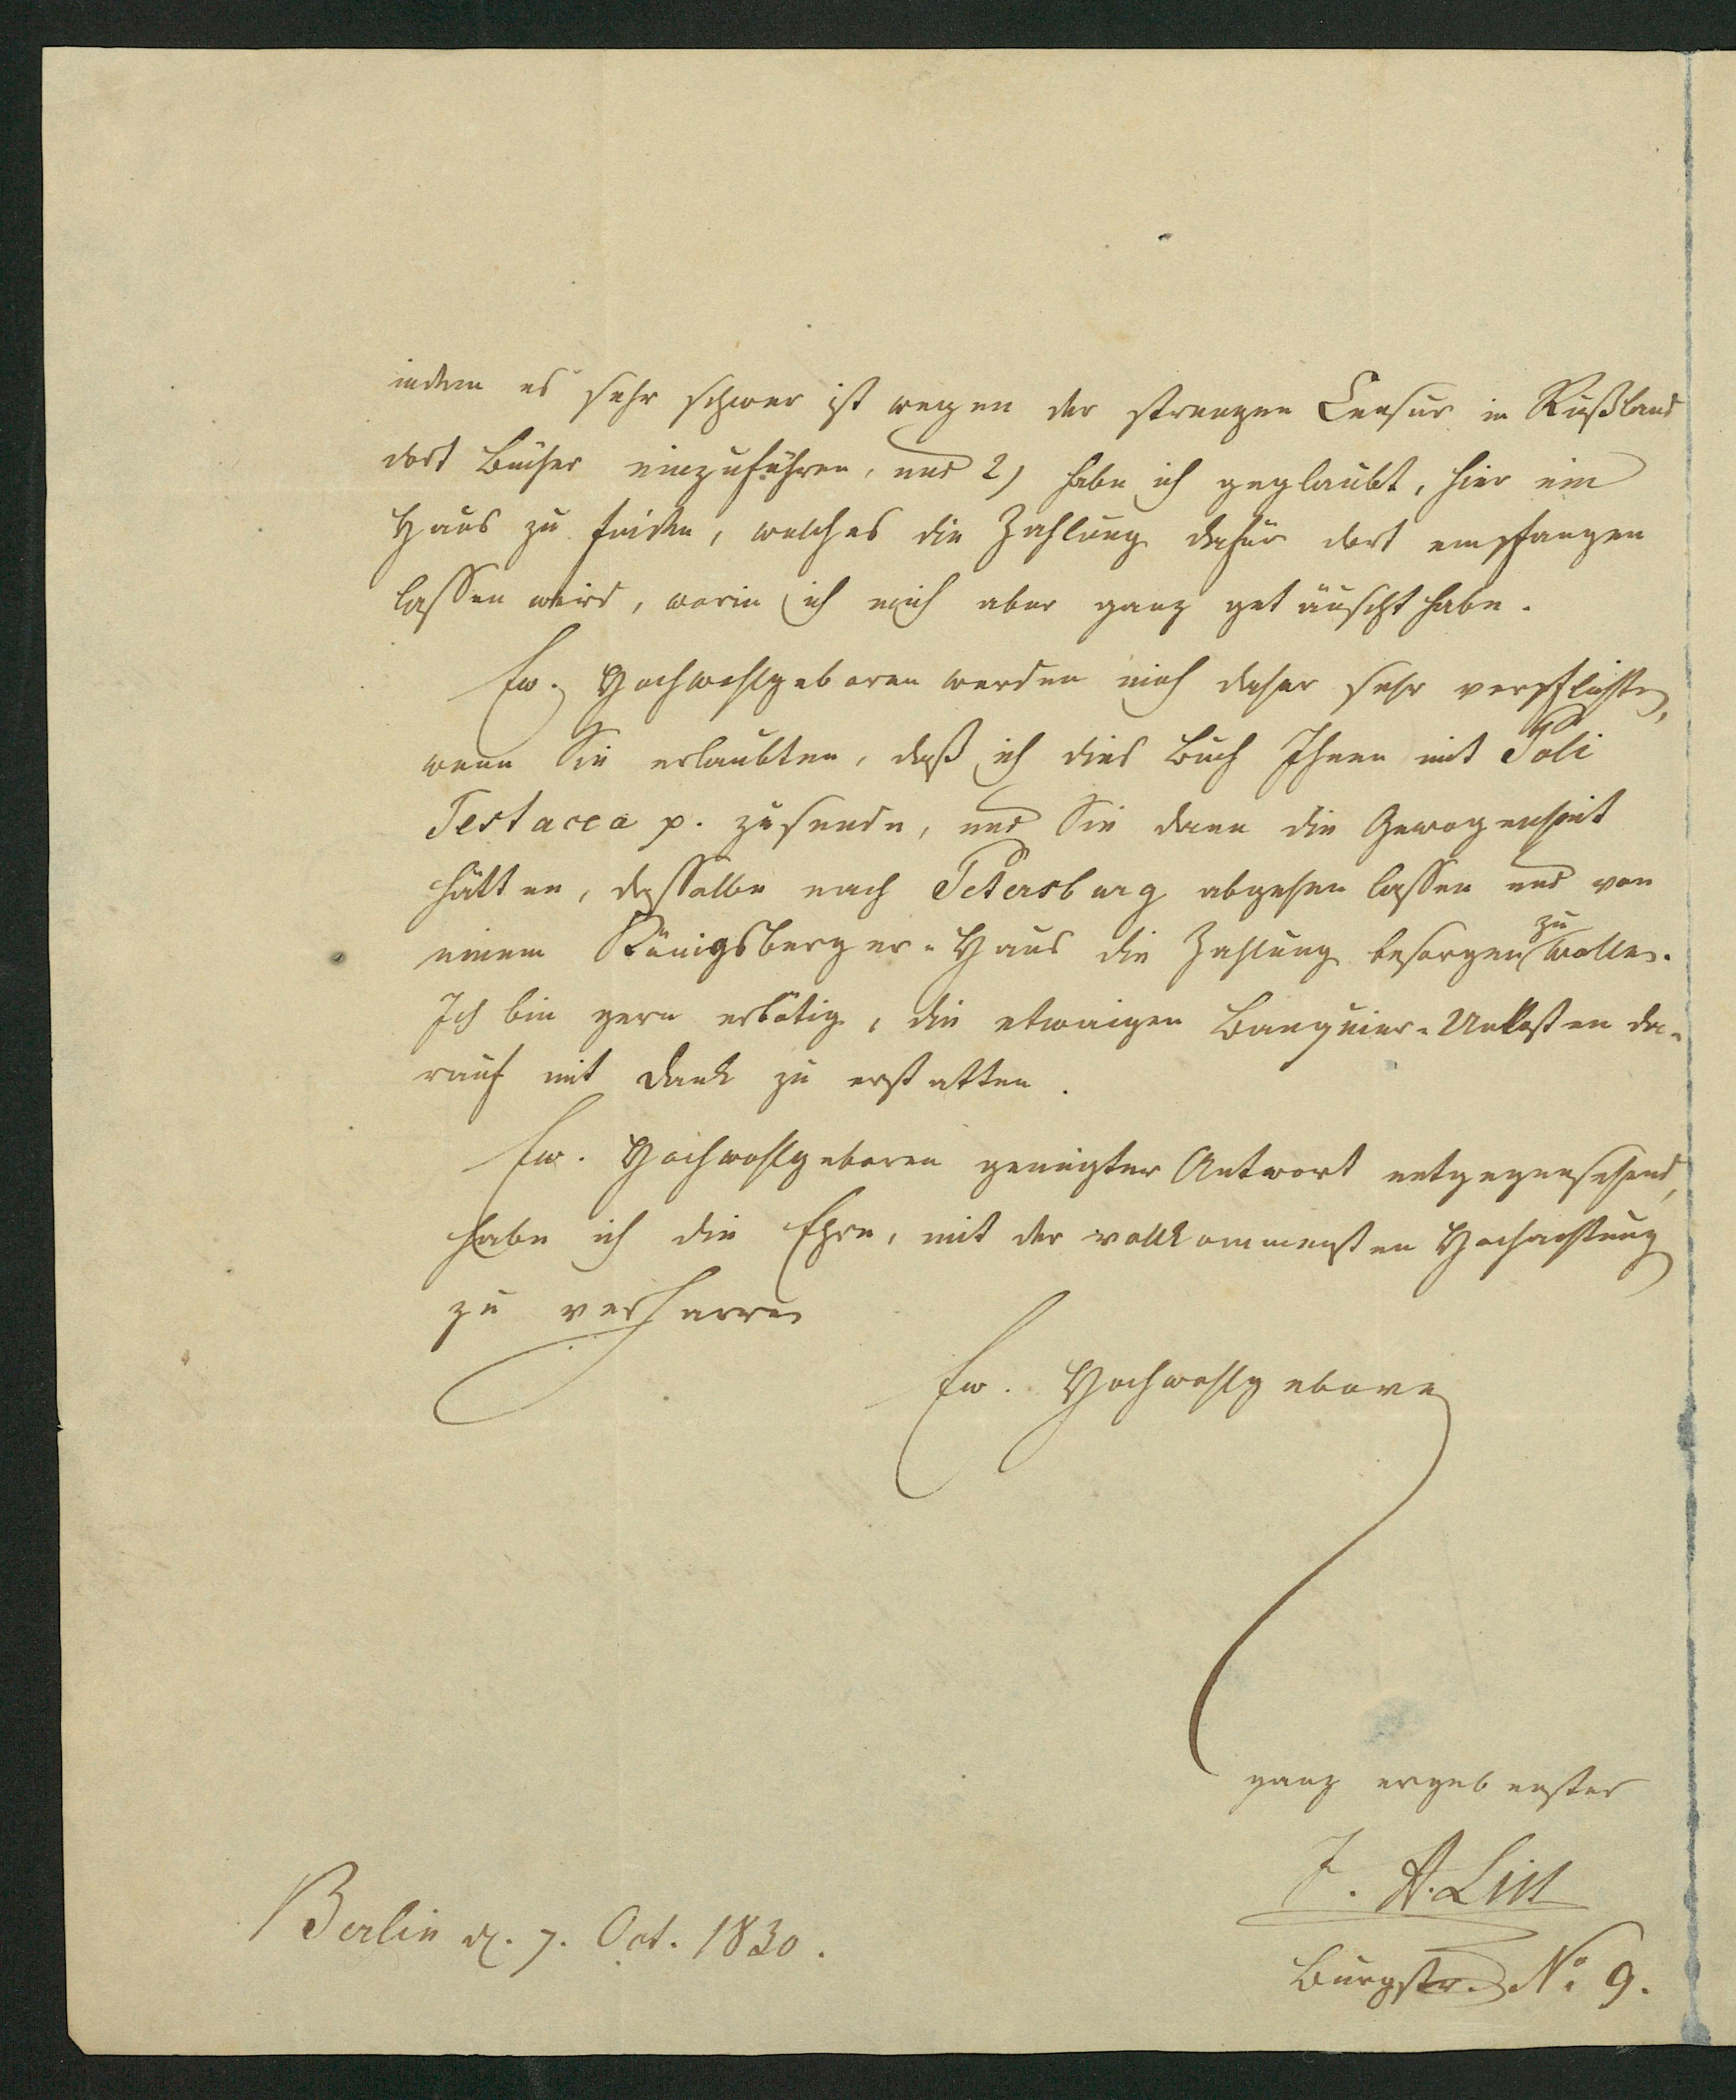 indem es sehr schwer ist wegen der strengen Censur in Rußland
dort Bücher einzuführen, und 2) habe ich geglaubt, hier ein
Haus zu finden, welches die Zahlung dafür dort empfangen
lassen wird, worin ich mich aber ganz getäuscht habe.
Ew. Hochwohlgeboren werden mich daher sehr verpflichten,
wenn Sie erlaubten, daß ich dies Buch Ihnen mit Poli
Testacea p. zusende, und Sie dann die Gewogenheit
hätten, dasselbe nach Petersburg abgehen lassen und von
einem Königsberger-Haus die Zahlung besorgen zu wollen.
Ich bin gern erbötig, die etwaigen Banquier-Unkosten da-
rauf mit Dank zu erstatten.
Ew. Hochwohlgeboren geneigter Antwort entgegensehend,
habe ich die Ehre, mit der vollkommensten Hochachtung
zu verharren
Ew. Hochwohlgeboren
ganz ergebenster
J. A. List
Burgstr. No 9.
Berlin d. 7. Oct. 1830.